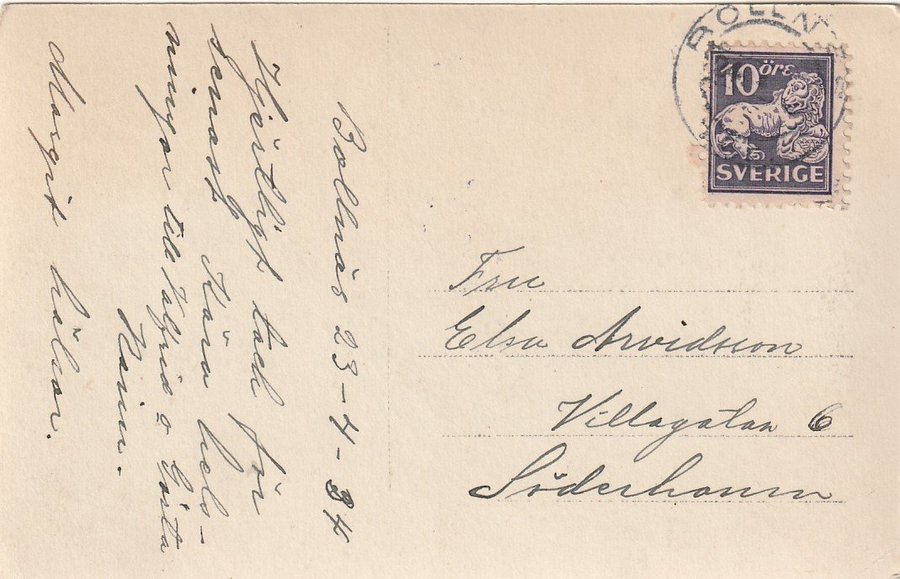 Bollnäs 23-4-34
Hjertligt tack för
senast. Kära häls-
ningar till Alfrid o Gösta
Karin.
Margit hälsar.
BOLLN
10 öre
SVERIGE
Fru
Elsa Arvidsson
Villagatan 6
Söderhamn